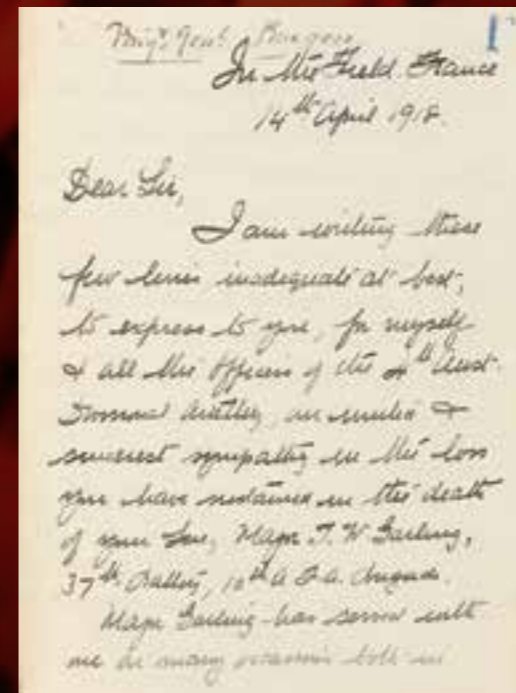 Brig. Genl. Burgess
1
In the Field France
14th April 1918.
Dear Sir,
I am writing these
few lines inadequate at best,
to express to you, for myself
& all the Officers of the 4th Aust.
Divisional Artillery, our united &
sincerest sympathy in the loss
you have sustained in the death
of your Son, Major T. W Garling,
37th Battery, 10th A F A. Brigade.
Major Garling has served with
me on many occasions both in